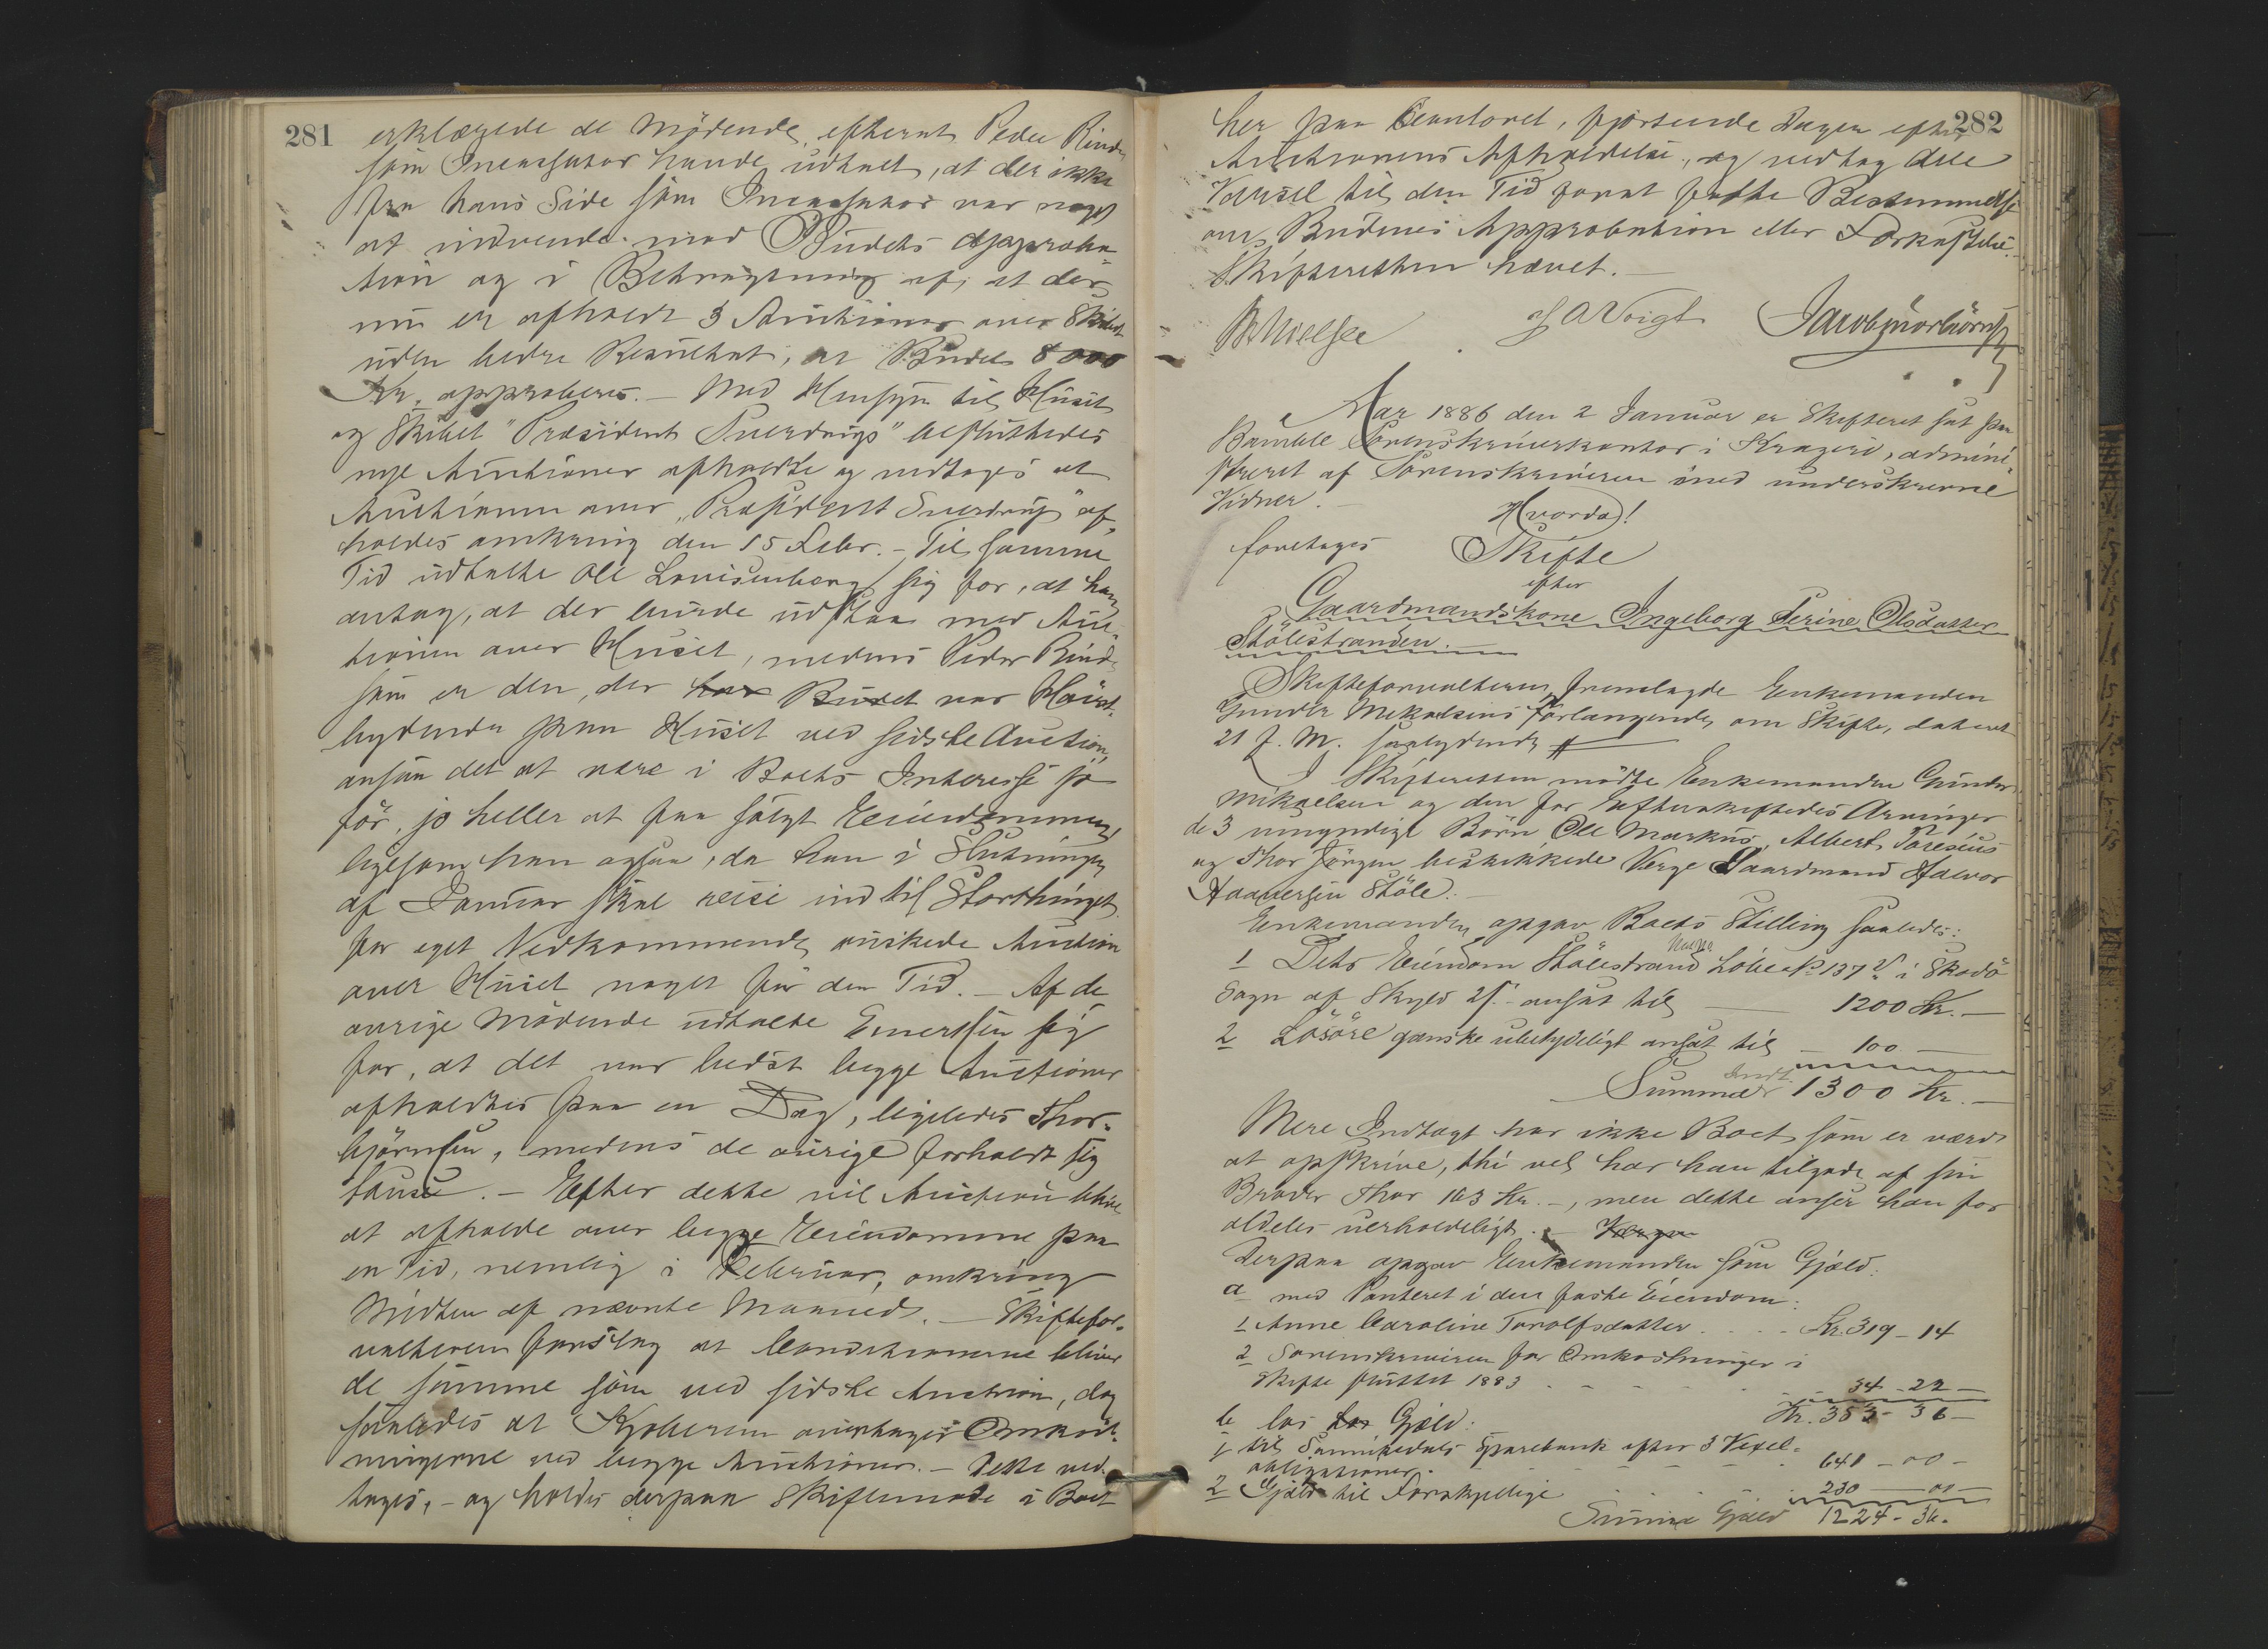 281
erklærede de Mödende, efterat Peder Rinde
som Incassator havde udtalt, at der ikke
fra hans Side som Incassator var noget
at indvende mod Budets Approba-
tion og i Betragtning af, at der
nu er afholdt 3 Auktioner over Skibet
uden bedre Resultat, at Budet 8000
Kr. approberes. – Med Hensyn til Huset
og Skibet "Præsident Sverdrup" besluttedes
nye Auktioner afholdte og vedtages at
Auktionen over "Præsident Sverdrup" af-
holdes omkring den 15 Febr. – Til samme
Tid udtalte Ole Louisenberg sig for, at han
antog, at der burde udstaa med Auk-
tionen over Huset, medens Peder Rinde
som er den, der har Budet var Höist-
bydende paa Huset ved sidste Auction,
ansaa det at være i Boets Interesse jo
för, jo heller at faa solgt Eiendommen,
ligesom han ogsaa, da han i Slutningen
af Januar skal reise ind til Storthinget
for eget Vedkommende önskede Auktion
over Huset noget för den Tid. – Af de
övrige Mödende udtalte Evertsen sig
for, at det var bedst begge Auctioner
afholdtes paa en Dag, ligeledes Thor-
björnsen, medens de övrige forholdt sig
tause. – Efter dette vil Auktion blive
at afholde over begge Eiendomme paa
en Tid, nemlig i Februar, omkring
Midten af nævnte Maaned. – Skiftefor-
valteren foreslog at Conditionerne blive
de samme som ved sidste Auction, dog
saaledes at Kjøberen overtager Omkost-
ningerne ved begge Auktioner. – Dette ved-
toges, – og holdes derpaa Skiftemöde i Boet
282
her paa Contoret, fjortende Dagen efter
Auktionens Afholdelse, og vedtog alle
Varsel til den Tid forat fatte Bestemmelse
om Budenes Approbation eller Forkastelse.
Skifteretten hævet. –
Nielsen A Voigt Jacob
Aar 1886 den 2 Januar er Skifteret sat paa
Bamble Sorenskriverkontor i Kragerö, admini-
streret af Sorenskriveren med underskrevne
Vidner. –
Hvorda!
foretages Skifte
efter
Gaardmandskone Ingeborg Serine Olsdatter
Stölestranden. –
Skifteforvalteren fremlagde Enkemanden
Gunder Mikalsens Forlangende om Skifte, dateret
21 f. M. saalydende #
I Skifteretten mödte Enkemanden Gunder
Mikaelsen og den for Efterskiftedes Arvinger
de 3 umyndige Börn Ole Markus, Albert Toresius
og Thor Jörgen beskikkede Verge Gaardmand Halvor
Haavorsen Stöle. –
Enkemanden opgav Boets Stilling saaledes:
1 Dets Eiendom Stölestrand Löbe No 137 i Skadö
Sogn af Skyld ansat til — 1200 Kr. –
2 Lösöre ganske ubetydeligt ansat til — 100 —
Summa Indt. 1300 Kr. –
Mere Indtægt har ikke Boet som er værd
at opskrive, thi vel har han tilgode af sin
Broder Thor 163 Kr. –, men dette anser han for
aldeles uerholdeligt. – Verge
Derpaa opgav Enkemanden som Gjæld:
a med Panteret i den faste Eiendom:
1 Anne Caroline Torolfsdatter . . . Kr. 319 – 14
2 Sorenskriveren for Omkostninger i
Skifte sluttet 1883 . . . 34 – 22 –
Kr. 353 – 36 –
b lös for Gjæld:
1 til Sannikedals Sparebank efter 3 Vexel-
obligationer . . . 641 – 00 –
2 Gjæld til Forskjellige . . . 230 — 00 –
Summa Gjæld 1224 – 36.